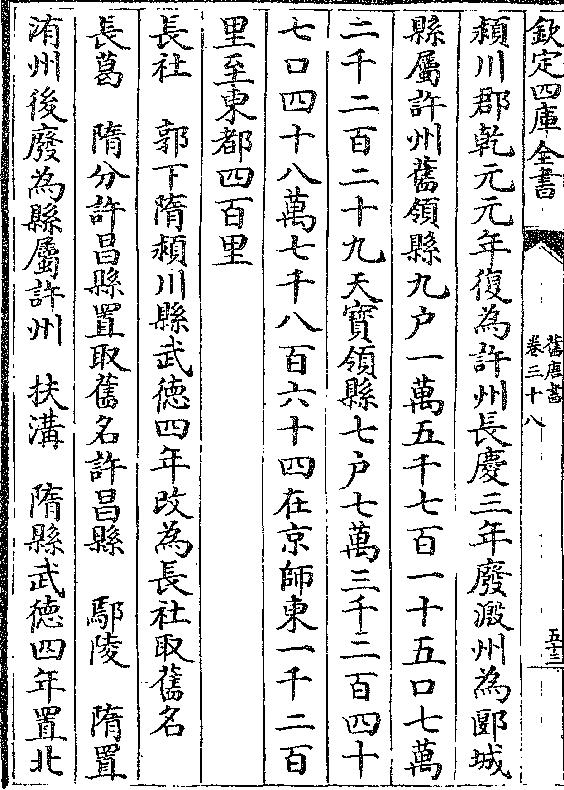 欽定四庫全書
舊唐書
卷三十八
五十三
潁川郡乾元元年復為許州長慶三年廢溵州為郾城
縣屬許州舊領縣九户一萬五千七百一十五口七萬
二千二百二十九天寶領縣七户七萬三千二百四十
七口四十八萬七千八百六十四在京師東一千二百
里至東都四百里
長社　郭下隋潁川縣武徳四年改為長社取舊名
長葛　隋分許昌縣置取舊名許昌縣　鄢陵　隋置
洧州後廢為縣屬許州　扶溝　隋縣武徳四年置北